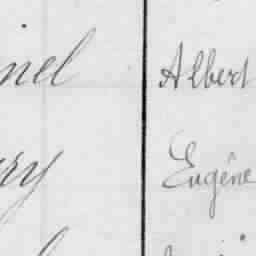 nel Albert
ry Eugène